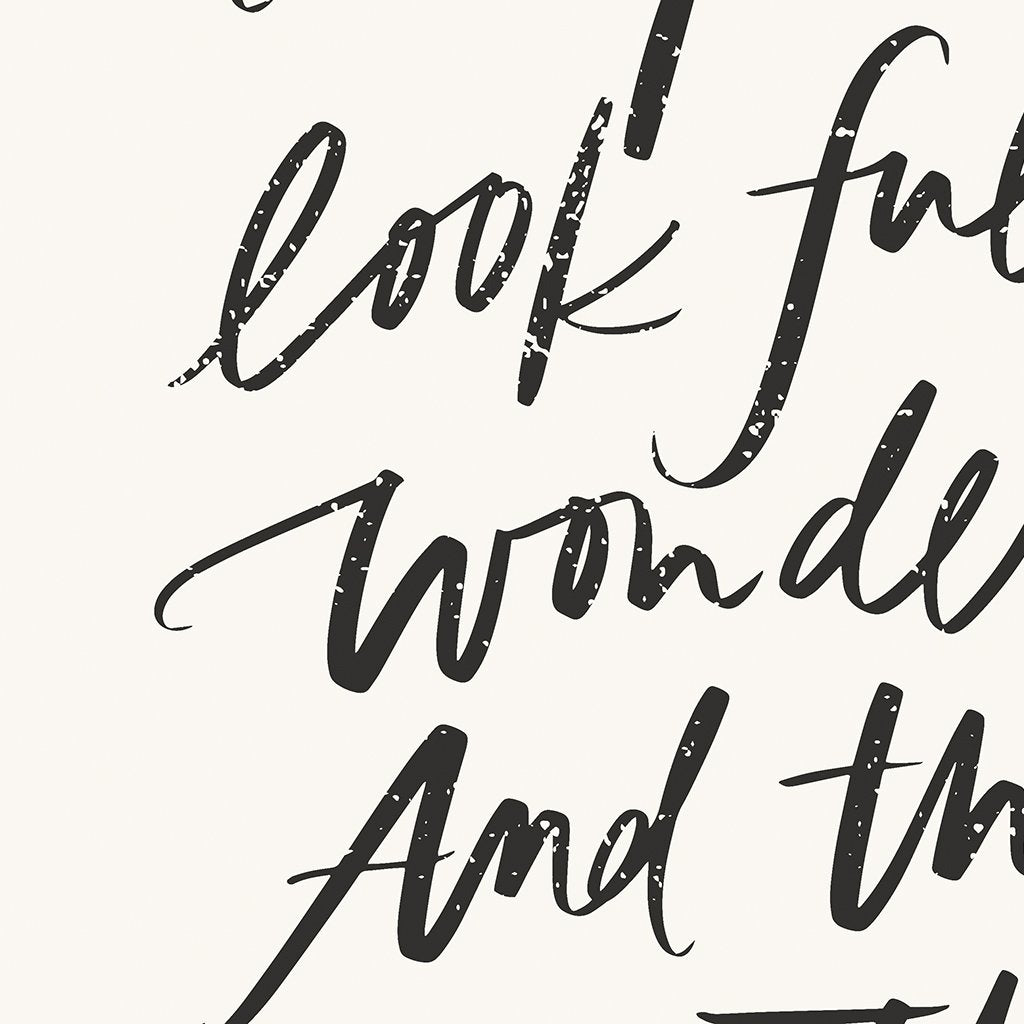 look ful
wonde
And th